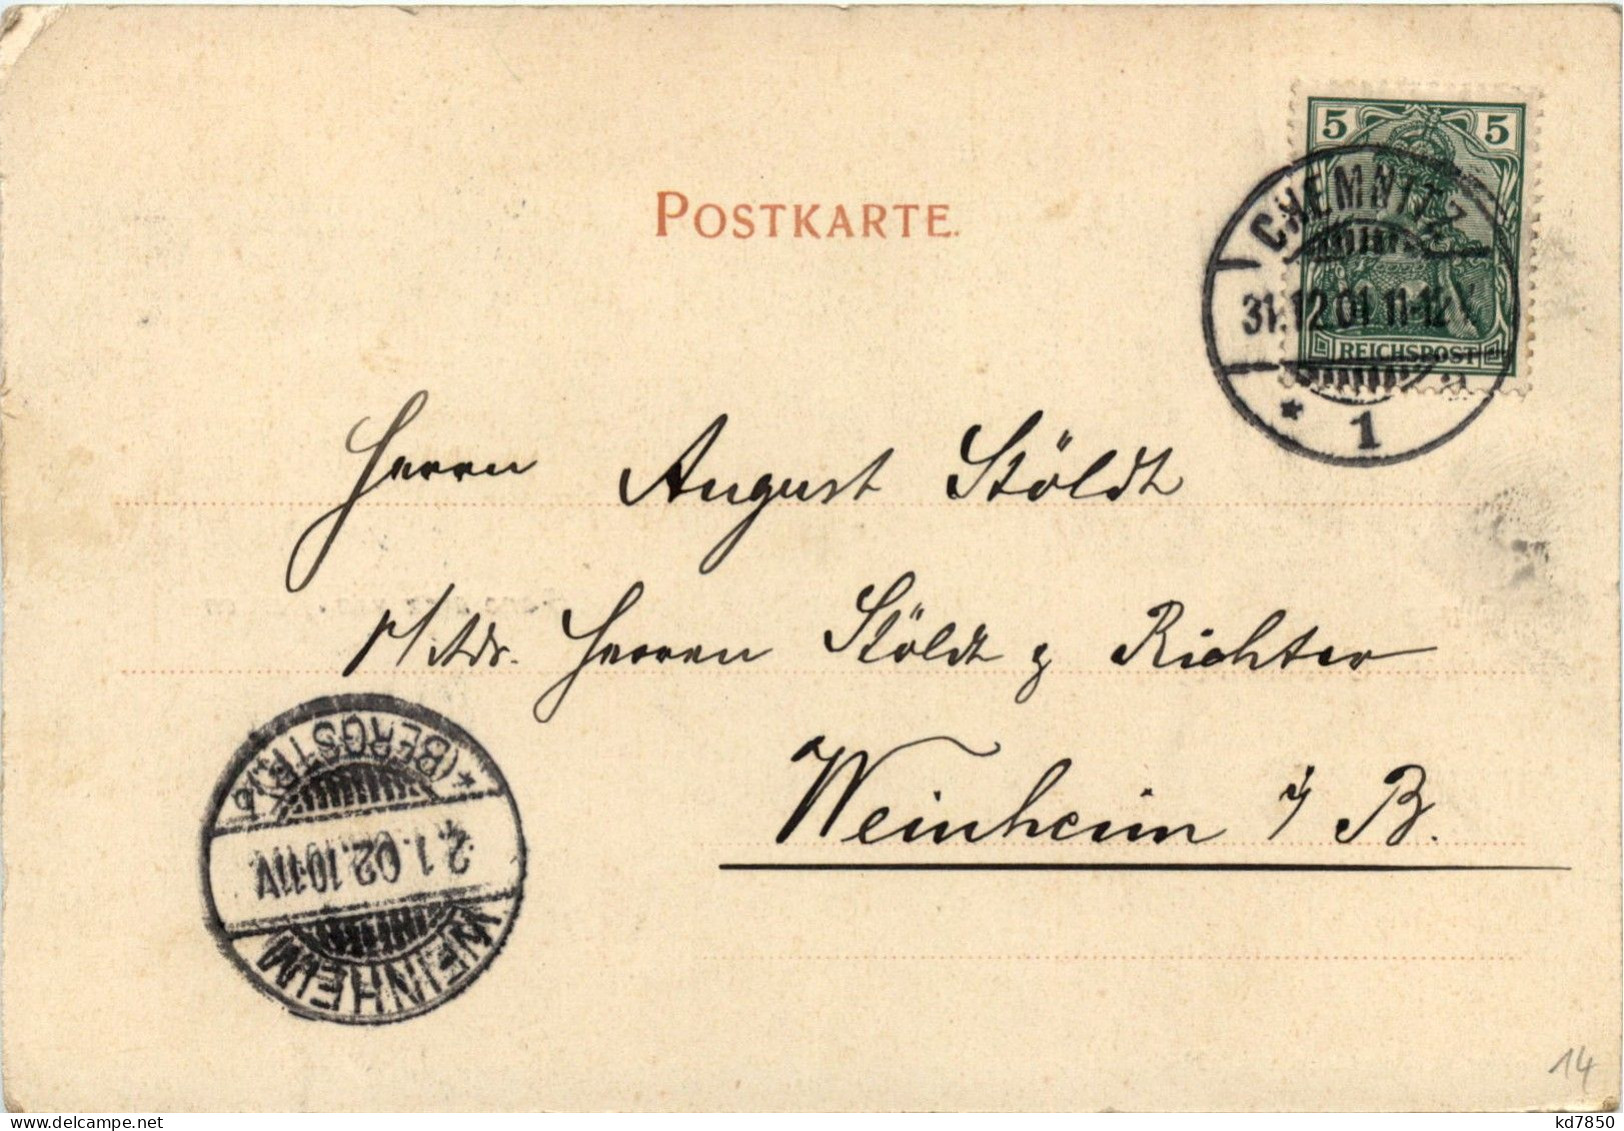 5 5
POSTKARTE.
CHEMNITZ
31.12.01 11-12V.
REICHSPOST
* 1
Herrn August Stöldt
p/Adr. Herren Stöldt & Richter
Weinheim i/B.
*(BERGSTR.) b
2.1.02.10-11V.
WEINHEIM
14
kd7850